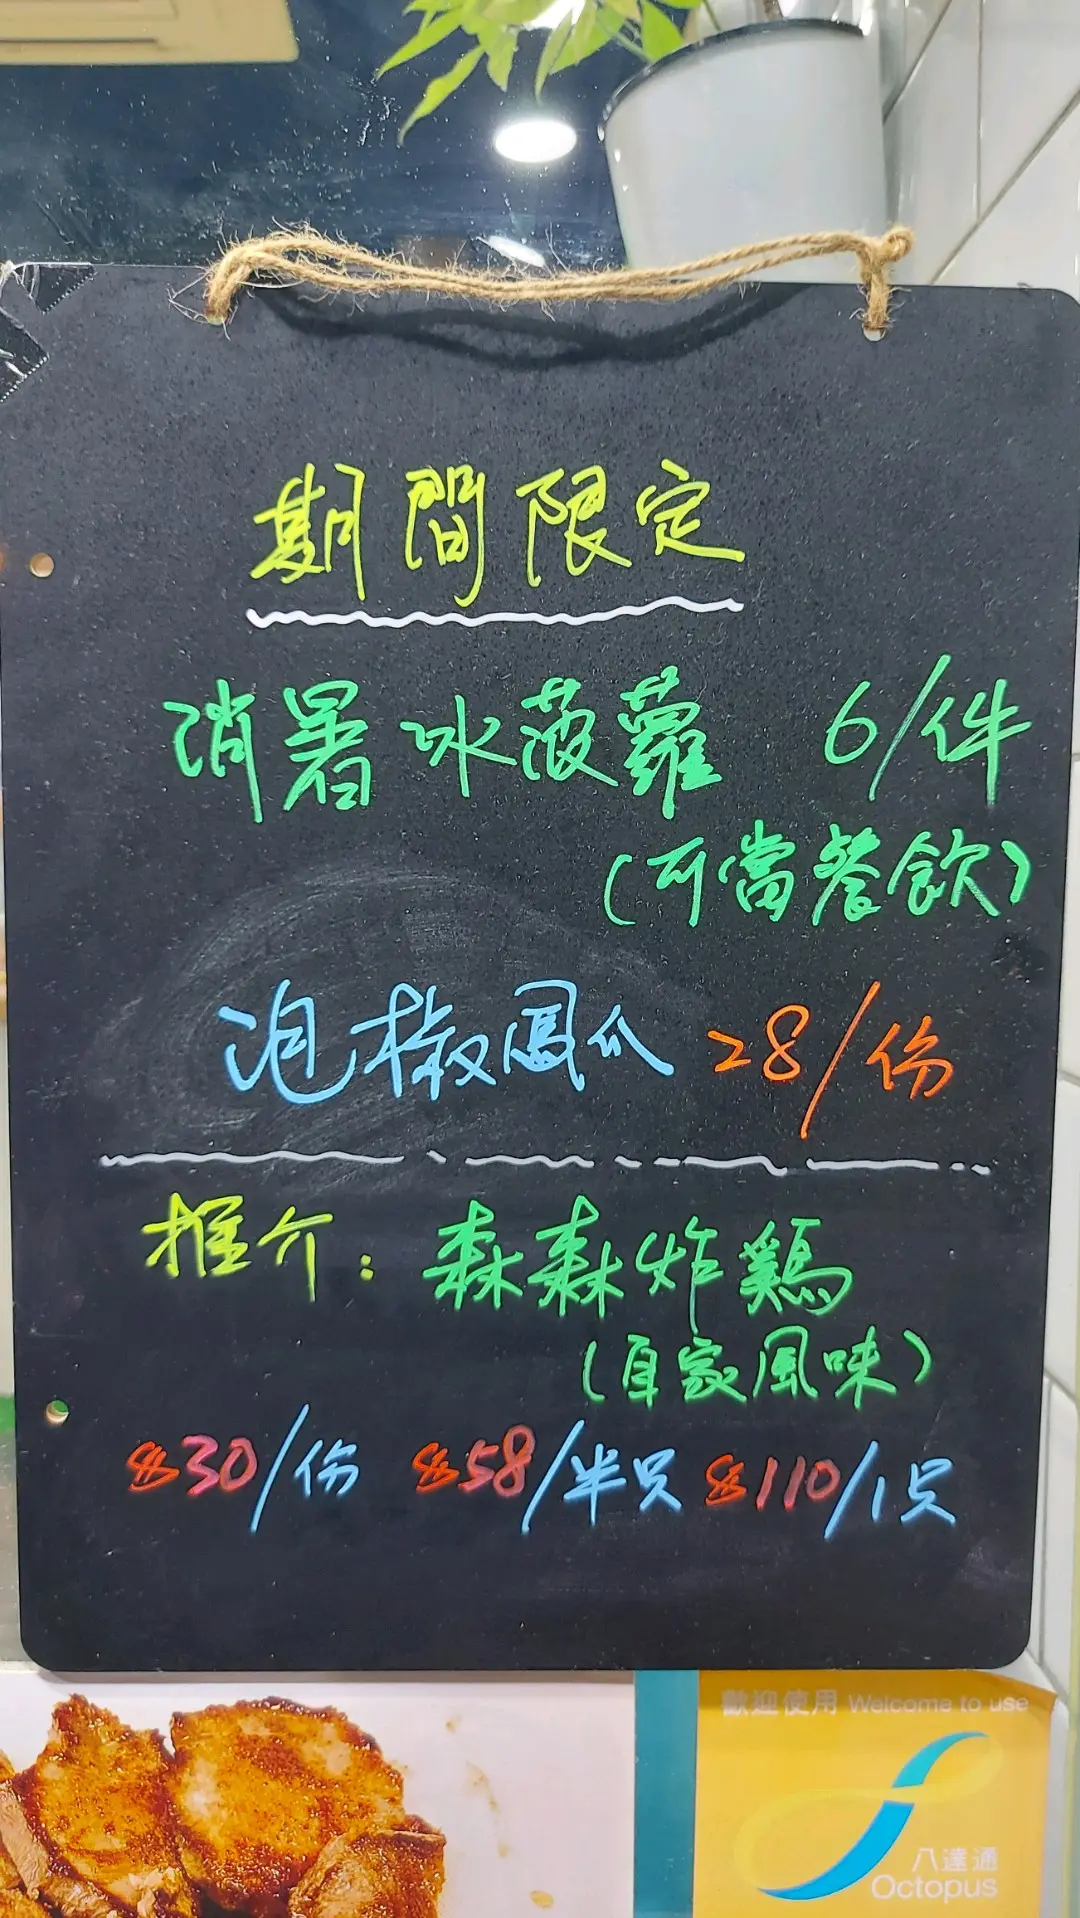 期間限定
消暑冰菠蘿 6/件
(可當餐飲)
泡椒鳳爪 28/份
推介：森森炸鷄
(自家風味)
$30/份 $58/半只 $110/1只
歡迎使用 Welcome to use
八達通
Octopus